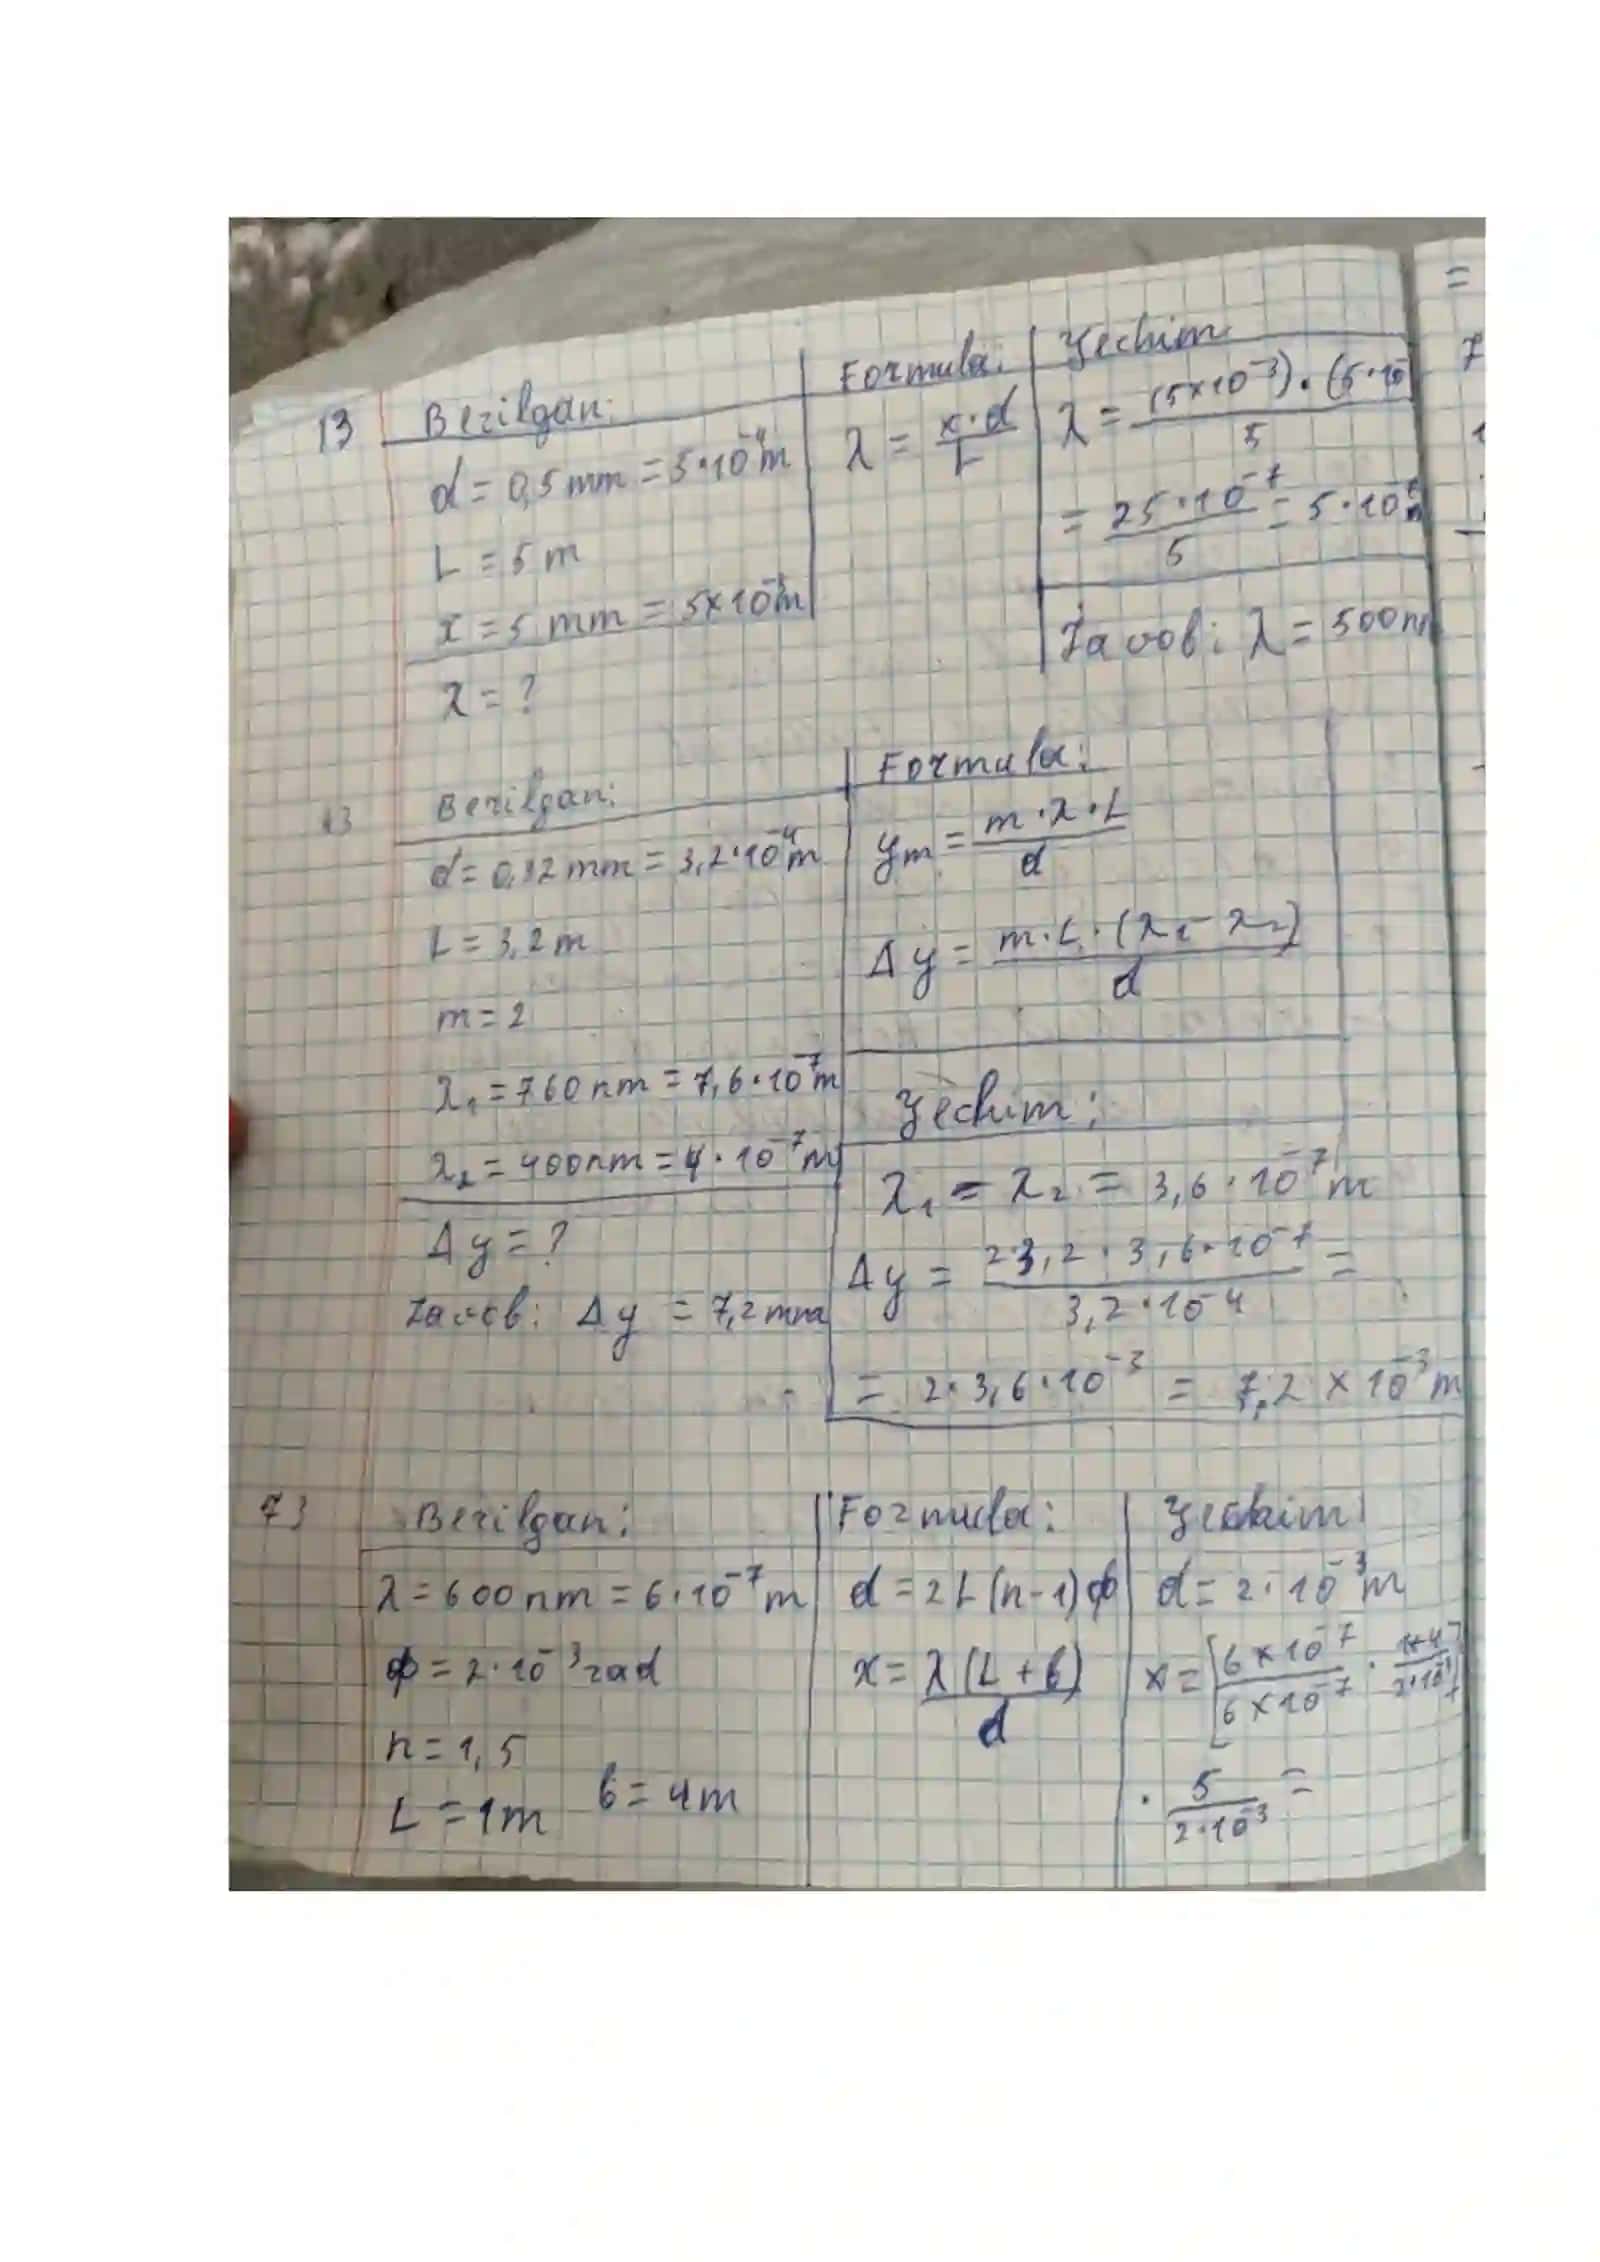 13 Berilgan:
d = 0,5 mm = 5·10⁻⁴m
L = 5 m
x = 5 mm = 5×10⁻³m
λ = ?
Formula:
λ = x·d / L
Yechim
λ = (5×10⁻³)·(5·10 / 5
= 25·10⁻⁷ / 5 = 5·10
Javob: λ = 500 n
Berilgan:
d = 0,32 mm = 3,2·10⁻⁴m
L = 3,2 m
m = 2
λ₁ = 760 nm = 7,6·10⁻⁷m
λ₂ = 400 nm = 4·10⁻⁷m
Δy = ?
Javob: Δy = 7,2 mm
Formula:
yₘ = m·λ·L / d
Δy = m·L·(λ₁ - λ₂) / d
Yechim:
λ₁ - λ₂ = 3,6·10⁻⁷m
Δy = 2·3,2·3,6·10⁻⁷ / 3,2·10⁻⁴ =
= 2·3,6·10⁻³ = 7,2 × 10⁻³m
73 Berilgan:
λ = 600 nm = 6·10⁻⁷m
ϕ = 2·10⁻³ rad
n = 1,5
L = 1m b = 4m
Formula:
d = 2L(n-1)ϕ
x = λ(L + b) / d
Yechim
d = 2·10⁻³m
x = [6×10⁻⁷ / 6×10⁻⁷ · 1+4
· 5 / 2·10⁻³ =
=
7